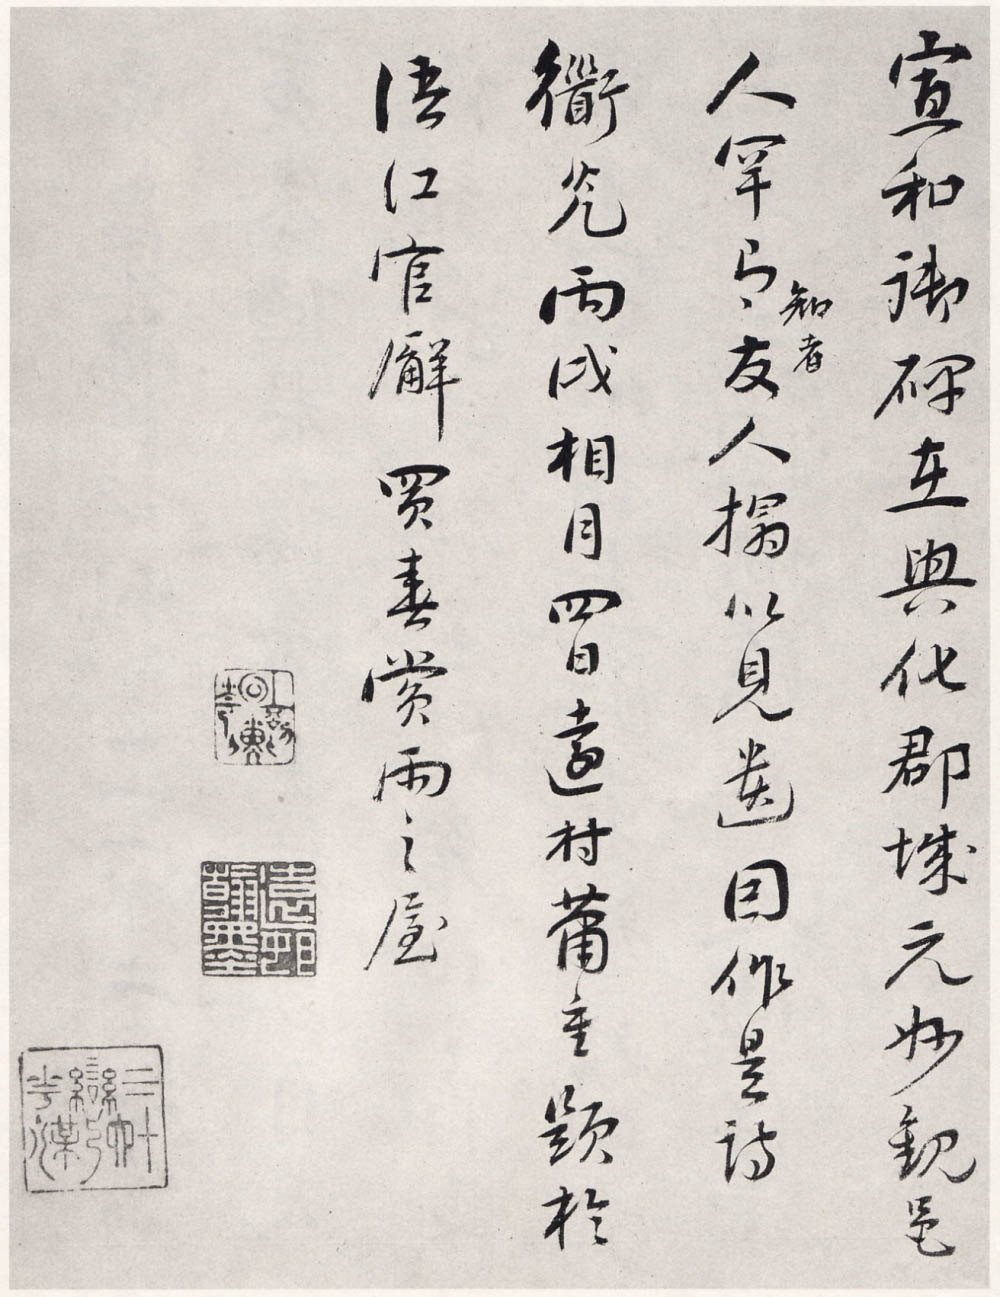 宣和御碑在興化郡城元妙觀邑
人罕有知者友人搨以見遺因作是詩
衟光丙戌相月四日遠村蕭重題於
浯江官廨買春賞雨之屋